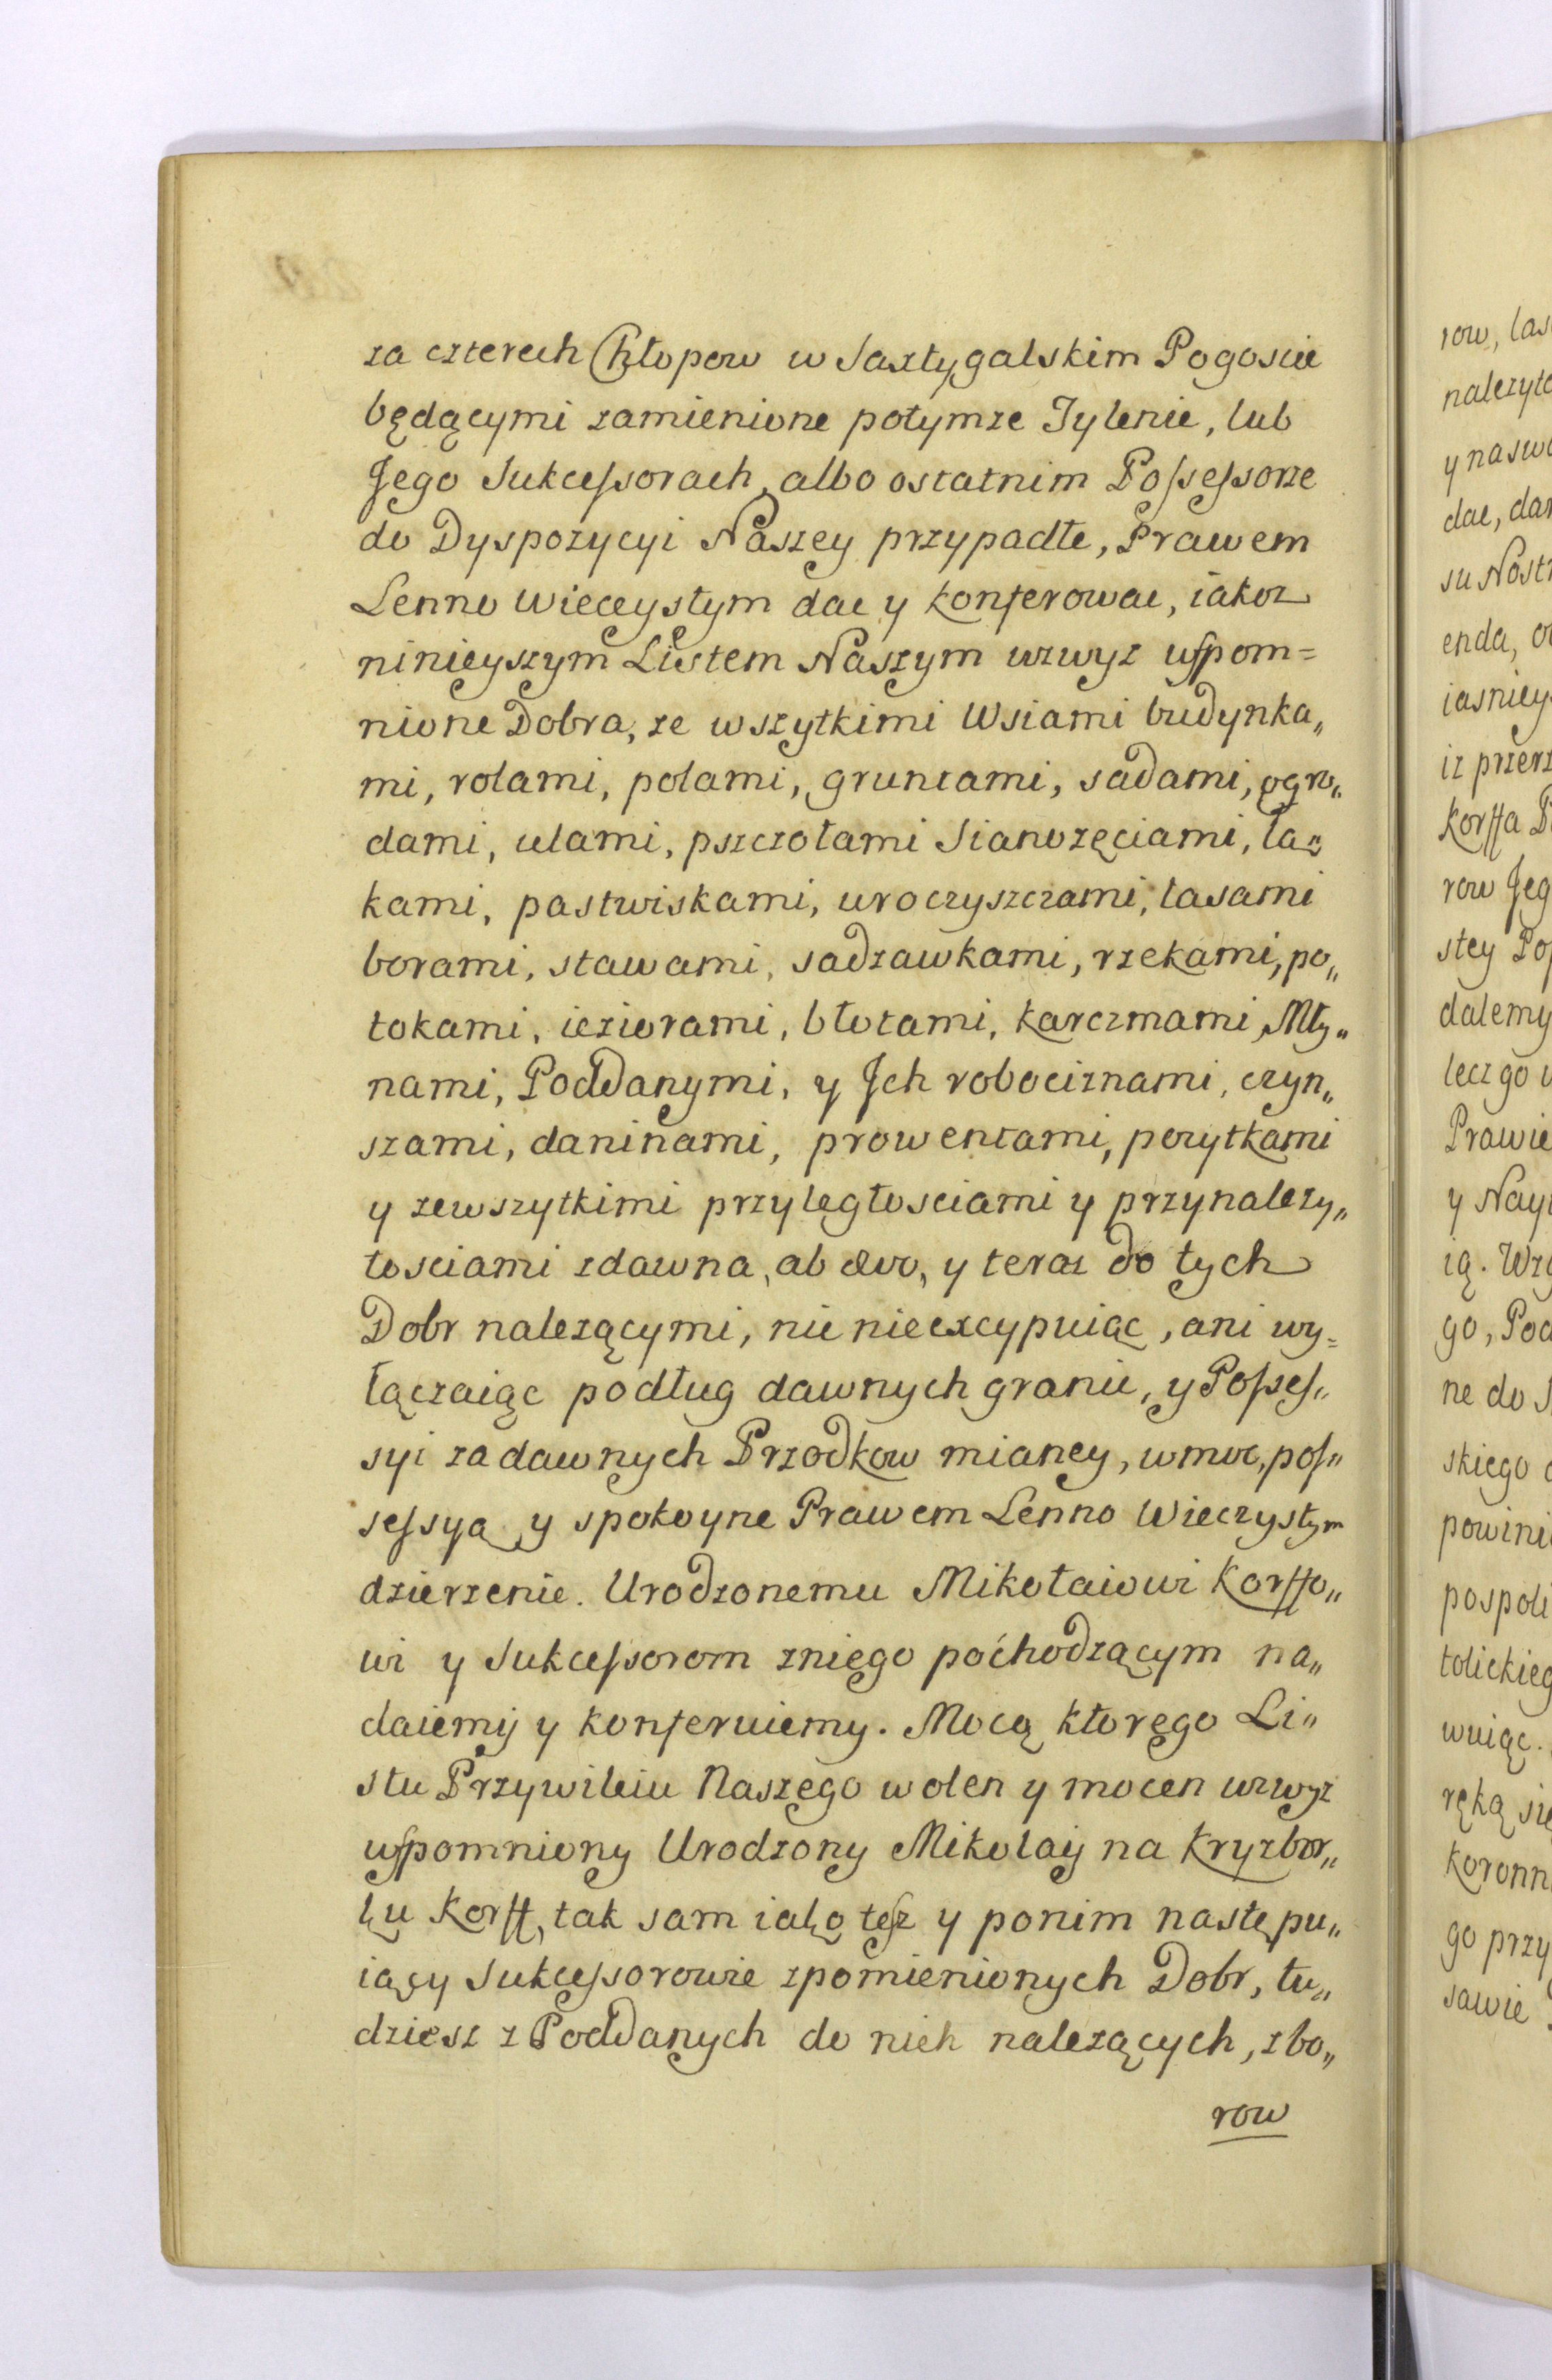 za czterech Chłopow w Saxtygalskim Pogoscie
będącymi zamienione potymze Tylenie, lub
Jego Sukceſsorach, albo ostatnim Poſseſsorze
do Dyspozycyi Naszey przypadłe, Prawem
Lenno wieceystym dac y konferowac, iakoz
ninieyszym Listem Naszym wzwyz wſpom=
nione Dobra, ze wszytkimi Wsiami budynka„
mi, rolami, polami, gruntami, sadami, ogro„
dami, ulami, pszczołami Sianozęciami, łą„
kami, pastwiskami, uroczyszczami, lasami
borami, stawami, sadzawkami, rzekami, po„
tokami, ieziorami, błotami, karczmami Mły„
nami, Poddanymi, y Jch robociznami, czyn„
szami, daninami, prowentami, pozytkami
y zewszytkimi przyległosciami y przynalezy„
tosciami zdawna, ab ævo, y teraz do tych
Dobr nalezącymi, nic nieexcypuiąc, ani wy=
łączaiąc podług dawnych granic, y Poſseſ„
syi za dawnych Przodkow mianey, wmoc, poſ„
seſsyą y spokoyne Prawem Lenno Wieczystym
dzierzenie. Urodzonemu Mikołaiowi Korffo„
wi y Sukceſsorom zniego pochodzącym na„
daiemy y konferuiemy. Mocą ktorego Li„
stu Przywileiu Naszego wolen y mocen wzwyz
wſpomniony Urodzony Mikolay na Kryzbor„
ku Korff, tak sam iako teſz y ponim nastepu„
iący Sukceſsorowie zpomienionych Dobr, tu„
dziesz z Poddanych do nich nalezących, zbo„
row
row, las
nalezyto
y naswo
dac, dar
su Nostr
enda, o
iasniey
iz przerz
Korffa P
row Jeg
stey Poſ
dalemy
lecz go
Prawie
y Nay
ią. Wzg
go, Pod
ne do S
skiego
powini
pospoli
tolickieg
wuiąc.
ręką się
koronn
go przy
sawie